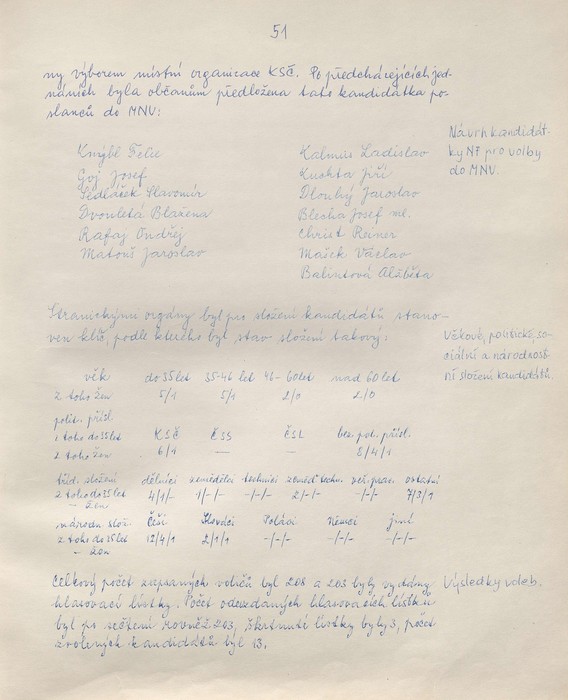 51
ny výborem místní organizace KSČ. Po předcházejících jed-
náních byla občanům předložena tato kandidátka po-
slanců do MNV:
Návrh kandidát-
ky NF pro volby
do MNV.
Knýbl Felix
Goj Josef
Sedláček Slavomír
Dvouletá Blažena
Rafaj Ondřej
Matouš Jaroslav
Kalmus Ladislav
Kuchta Jiří
Dlouhý Jaroslav
Blecha Josef ml.
Christ Reiner
Mašek Václav
Balintová Alžběta
Stranickými orgány byl pro složení kandidátů stano-
ven klíč, podle kterého byl stav složení takový:
Věkové, politické, so-
ciální a národnost-
ní složení kandidátů.
věk do 35 let 35-46 let 46-60 let nad 60 let
z toho žen 5/1 5/1 2/0 2/0
polit. přísl.
z toho do 35 let KSČ ČSS ČSL bez pol. přísl.
z toho žen 6/1 — — 8/4/1
tříd. složení dělníci zemědělci technici zeměd. techn. veř. prac. ostatní
z toho do 35 let 4/1/- 1/-/- -/-/- 2/-/- -/-/- 7/3/1
— žen
národn. slož. Češi Slováci Poláci Němci jiní
z toho do 35 let 12/4/1 2/1/1 -/-/- -/-/- -/-/-
— žen
Celkový počet zapsaných voličů byl 208 a 203 byly vydány
hlasovací lístky. Počet odevzdaných hlasovacích lístků
byl po sečtení rovněž 203, škrtnuté lístky byly 3, počet
zvolených kandidátů byl 13.
Výsledky voleb.